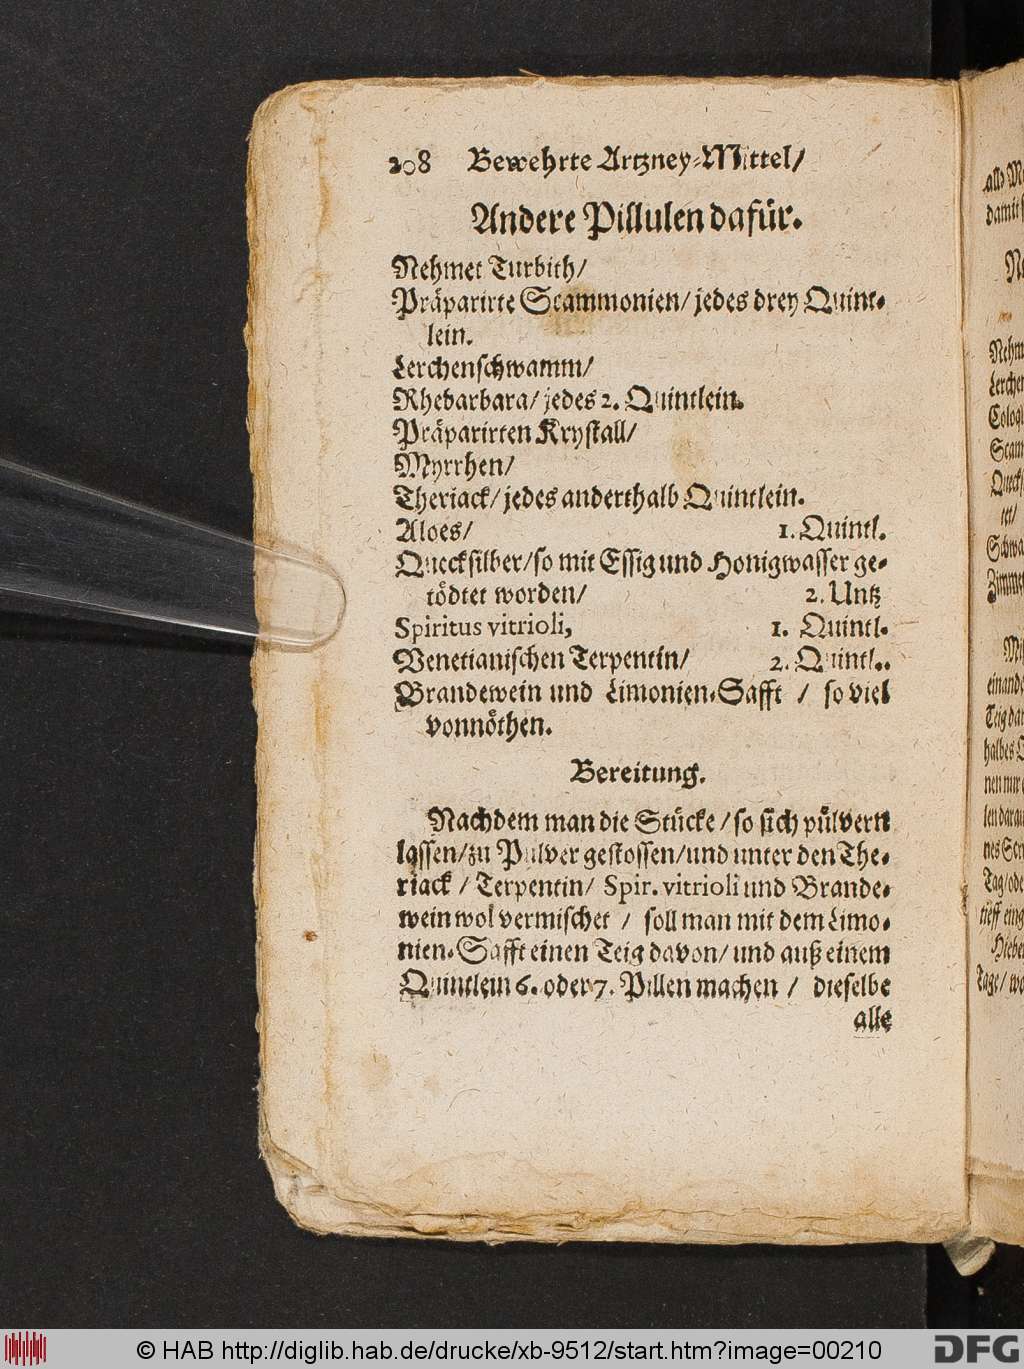 208 Bewehrte Artzney-Mittel/
Andere Pillulen dafür.
Nehmet Turbith/
Präparirte Scammonien/ jedes drey Quint-
lein.
Lerchenschwamm/
Rhebarbara/ jedes 2. Quintlein.
Präparirten Krystall/
Myrrhen/
Theriack/ jedes anderthalb Quintlein.
Aloes/ 1. Quintl.
Quecksilber/ so mit Essig und Honigwasser ge-
tödtet worden/ 2. Untz
Spiritus vitrioli, 1. Quintl.
Venetianischen Terpentin/ 2. Quintl..
Brandewein und Limonien-Safft / so viel
vonnöthen.
Bereitung.
Nachdem man die Stücke / so sich pülvern
lassen/ zu Pulver gestossen/ und unter den The-
riack / Terpentin/ Spir. vitrioli und Brande-
wein wol vermischet / soll man mit dem Limo-
nien-Safft einen Teig davon/ und auß einem
Quintlein 6. oder 7. Pillen machen / dieselbe
alle
damit
Nehm
Lercher
Scam
Queck
Schwa
Zimmet
einande
Teig dar
halbes
len darau
Tag/ ode
tieff eing
Tage/ wo
© HAB http://diglib.hab.de/drucke/xb-9512/start.htm?image=00210
DFG